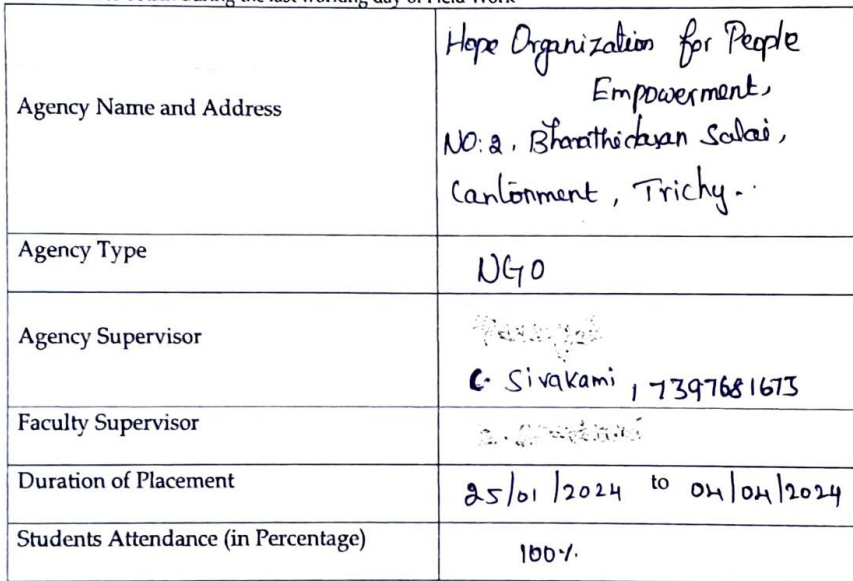 during the last working day of Field Work
Agency Name and Address
Hope Organization for People
Empowerment,
NO: 2, Bharathidasan Salai,
Cantonment, Trichy.
Agency Type
NGO
Agency Supervisor
C. Sivakami, 7397681673
Faculty Supervisor
Duration of Placement
25/01/2024 to 04/04/2024
Students Attendance (in Percentage)
100%